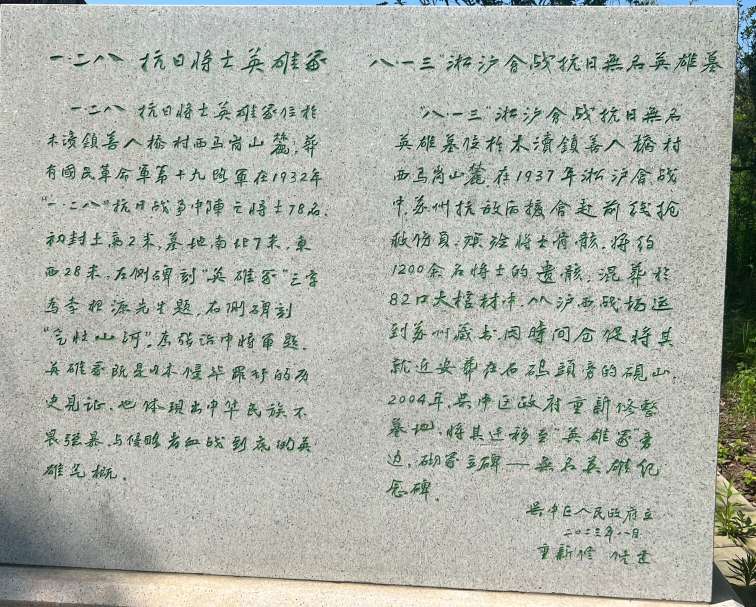 一·二八 抗日将士英雄冢
一·二八 抗日将士英雄冢位於
木瀆鎮善人橋村西马崗山麓，葬
有國民革命軍第十九路軍在1932年
“一·二八”抗日战争中陣亡将士78名。
初封土高2米，墓地南北7米，東
西28米，左侧碑刻“英雄冢”三字
為李根源先生題，右侧碑刻
“气壮山河”為張治中将軍題。
英雄冢既是日本侵华罪行的历
史見证，也体現出中华民族不
畏强暴，与侵略者血战到底的英
雄气概。
“八·一三”淞沪會战抗日無名英雄墓
“八·一三”淞沪會战抗日無名
英雄墓位於木瀆鎮善人橋村
西马崗山麓，在1937年淞沪會战
中，苏州抗敌后援會赴前线抢
救伤員，殯殮将士骨骸，将约
1200余名将士的遺骸，混葬於
82口大棺材中，从沪西战场运
到苏州藏书，因時間仓促将其
就近安葬在石码頭旁的硯山。
2004年，吴中区政府重新修整
墓地，将其迁移至“英雄冢”旁
边，砌冢立碑——無名英雄纪
念碑。
吴中区人民政府立
二〇二三年八日
重新修 修建